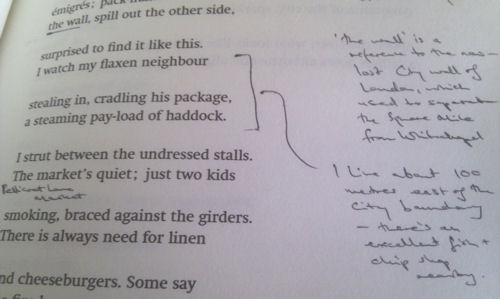 émigrés; pack
the wall, spill out the other side.
surprised to find it like this.
I watch my flaxen neighbour
stealing in, cradling his package,
a steaming pay-load of haddock.
I strut between the undressed stalls.
The market's quiet; just two kids
Petticoat Lane
market
smoking, braced against the girders.
There is always need for linen
nd cheeseburgers. Some say
'the wall' is a
reference to the
lost City wall of
London, which
used to separate
the Square Mile
from Whitechapel
I live about 100
metres east of the
City boundary
– there's an
excellent fish +
chip shop
nearby.